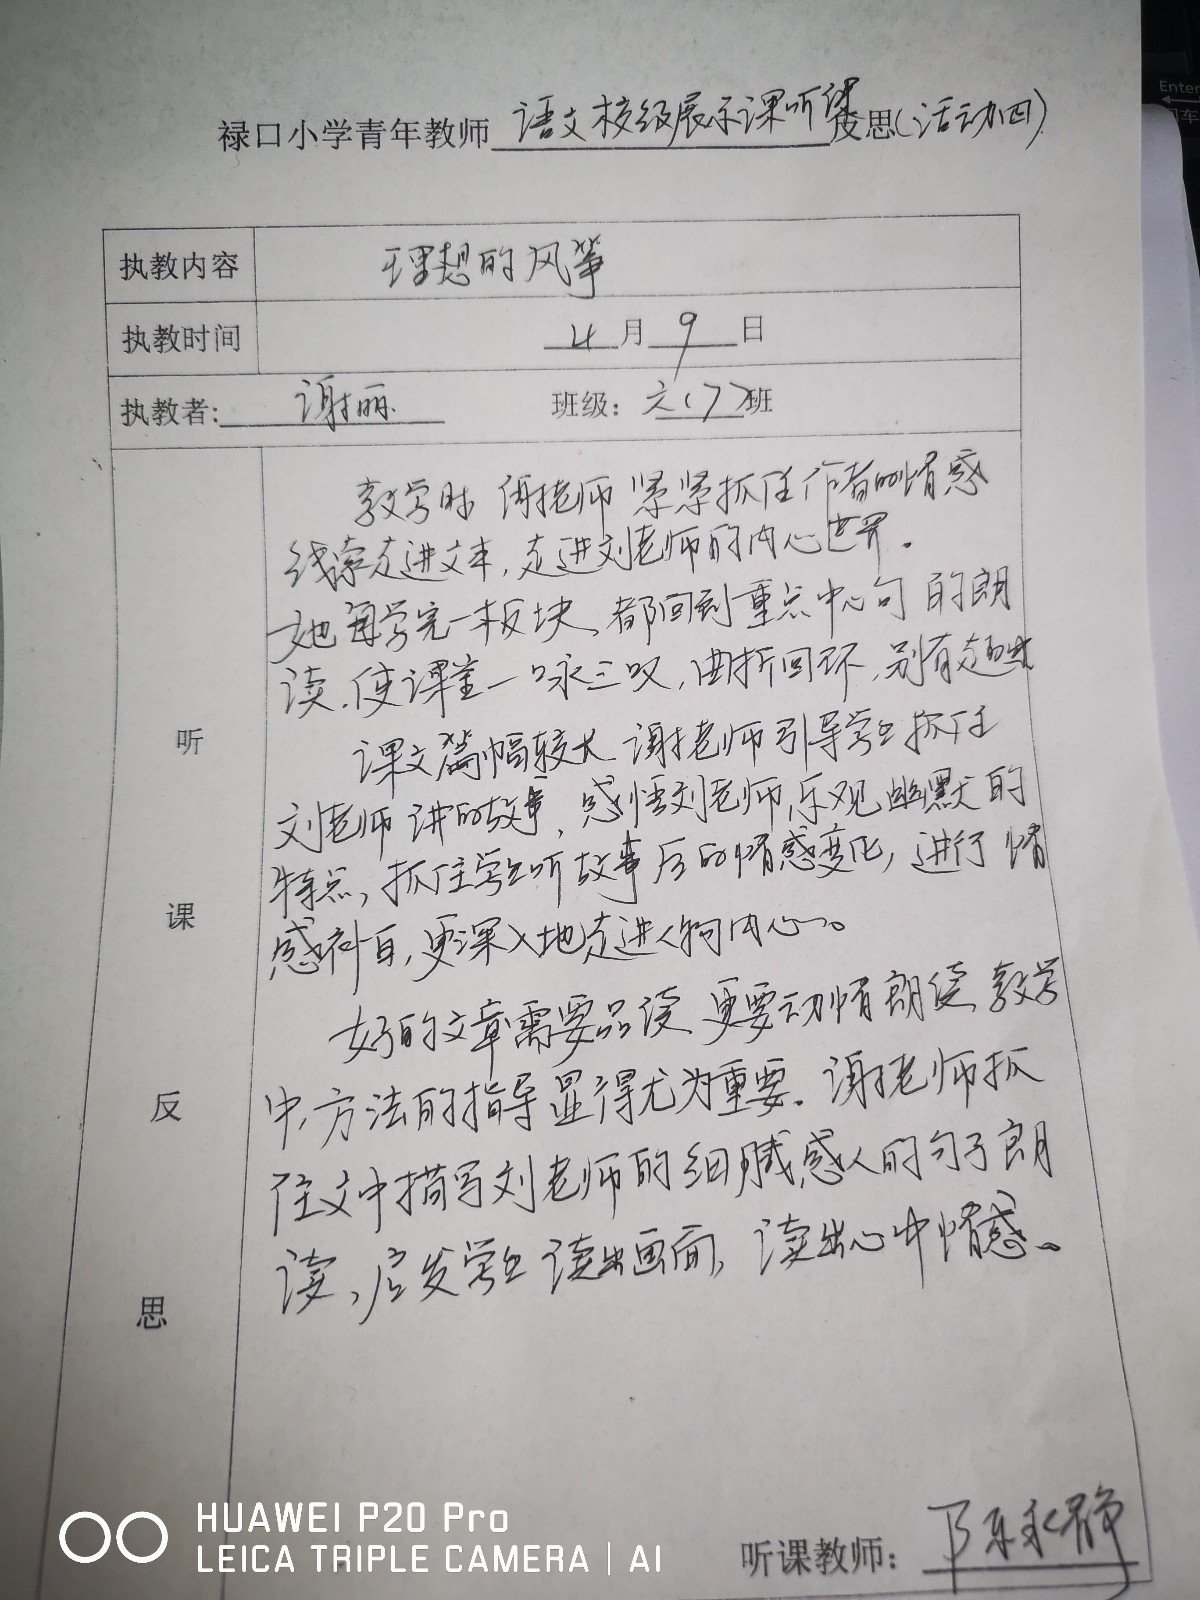 禄口小学青年教师语文校级展示课听课反思(活动四)
执教内容 理想的风筝
执教时间 4月9日
执教者: 谢丽 班级: 六(7)班
听课反思
教学时 谢老师 紧紧抓住作者的情感
线索走进文本,走进刘老师的内心世界。
她每学完一板块、都回到重点中心句的朗
读.使课堂一咏三叹,曲折回环,别有趣味
课文篇幅较长 谢老师引导学生抓住
刘老师讲的故事,感悟刘老师乐观幽默的
特点,抓住学生听故事后的情感变化,进行情
感补白,更深入地走进人物内心。
好的文章需要品读 更要动情朗读 教学
中,方法的指导显得尤为重要。谢老师抓
住文中描写刘老师的细腻,感人的句子朗
读、启发学生读出画面,读出心中情感。
听课教师: 陈永静
HUAWEI P20 Pro
LEICA TRIPLE CAMERA | AI